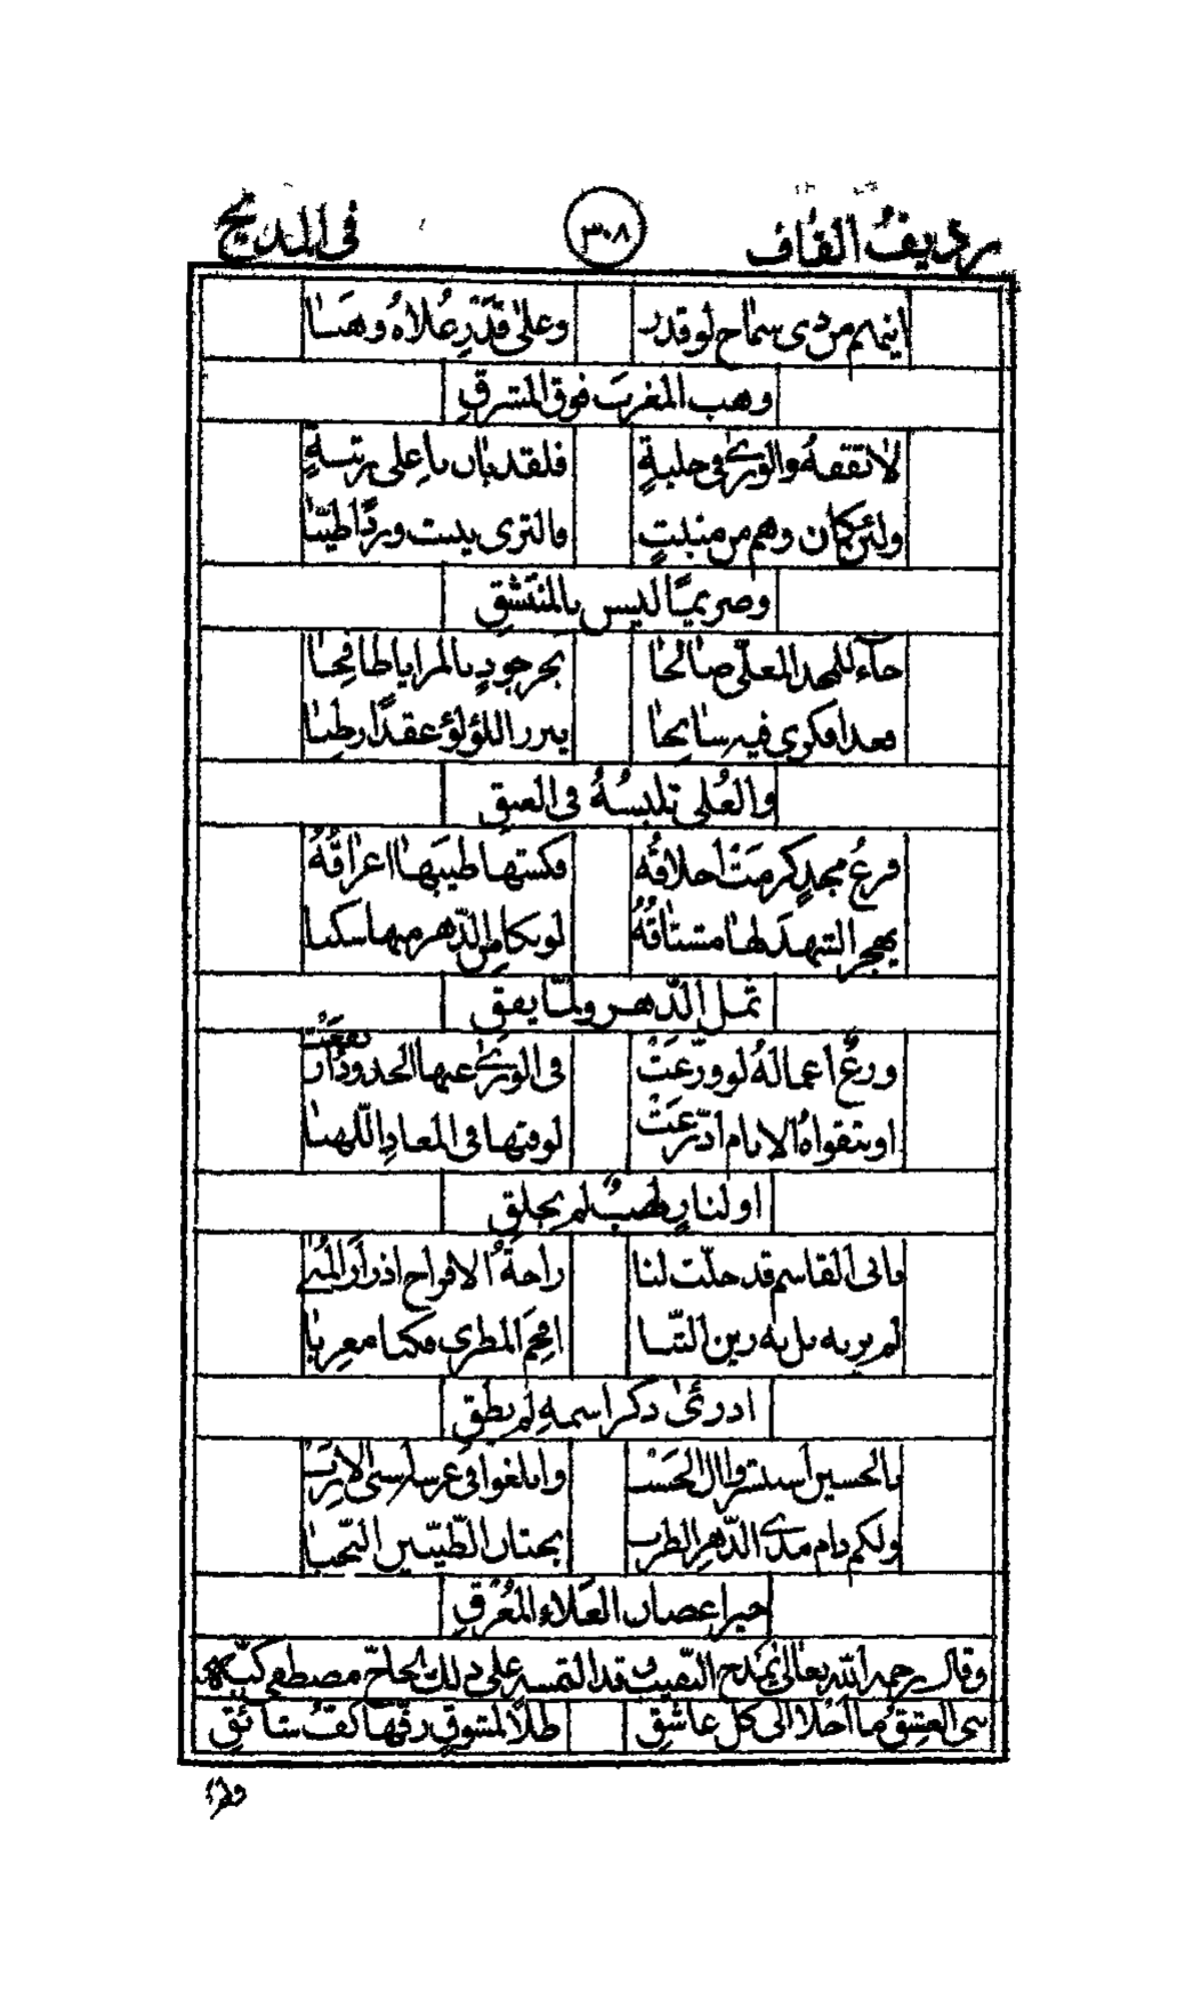 رديفُ القاف ٣٠٨ في المديح
اينهم من دى سماح لو قدر وعلى قَدْرِ عُلاهُ وهَبا
وهب المغربَ فوق المشرقِ
لا تقفهُ والورىٰ في حلبةٍ فلقد بان باعلى رتبةٍ
ولئن كان وهم من منبتٍ فالثرى ينبت وردًا طيّبا
وصريميًّا ليس بالمنتشقِ
جآء للمجد المعلّى صالحا بحر جودٍ بالمرايا طافحا
فغدا فكرى فيه سابحا يبرز اللؤلؤ عقدًا رطبا
والعُلى تلبسُهُ فى العنقِ
فرعُ مجدٍ كرمَتْ اخلاقُه فكستها طيبَها اعراقُهُ
يهجر الشهدَ لها مشتاقُهُ لو بكاسٍ الدّهر منها سكبا
ثمل الدّهر ولمّا يفق
ورعٌ اعمالهُ لو وزّعَتْ فى الورىٰ عنها الحدود ارتفعَتْ
او بتقواهُ الانام ادّرعَتْ لوقتها فى المعاد اللّهبا
او لنارٍ لهبٌ لم يخلقِ
بابى القاسم قد حلّت لنا راحةُ الافراح اذرار المُنى
لم نربه بل به زين الثنا افحَمَ المطرى فكنا معربا
ادرئ ذكر اسمهِ لم نطقِ
بالحسين استشروا ال الحسَبْ وابلغوا فى عرسه اسنى الارَبْ
ولكم دام مدىٰ الدّهرِ الطرب بختان الطّيبين النّجبا
خير اغصان العَلاء المُعْرِقِ
وقال رحمه الله تعالى يمدح النقيب قد التمسه على ذلك الحاجّ مصطفى كبّه
سمى العشقُ ما احلا الى كل عاشقِ طلًا لمشوقٍ رقّها كفُّ شائقِ